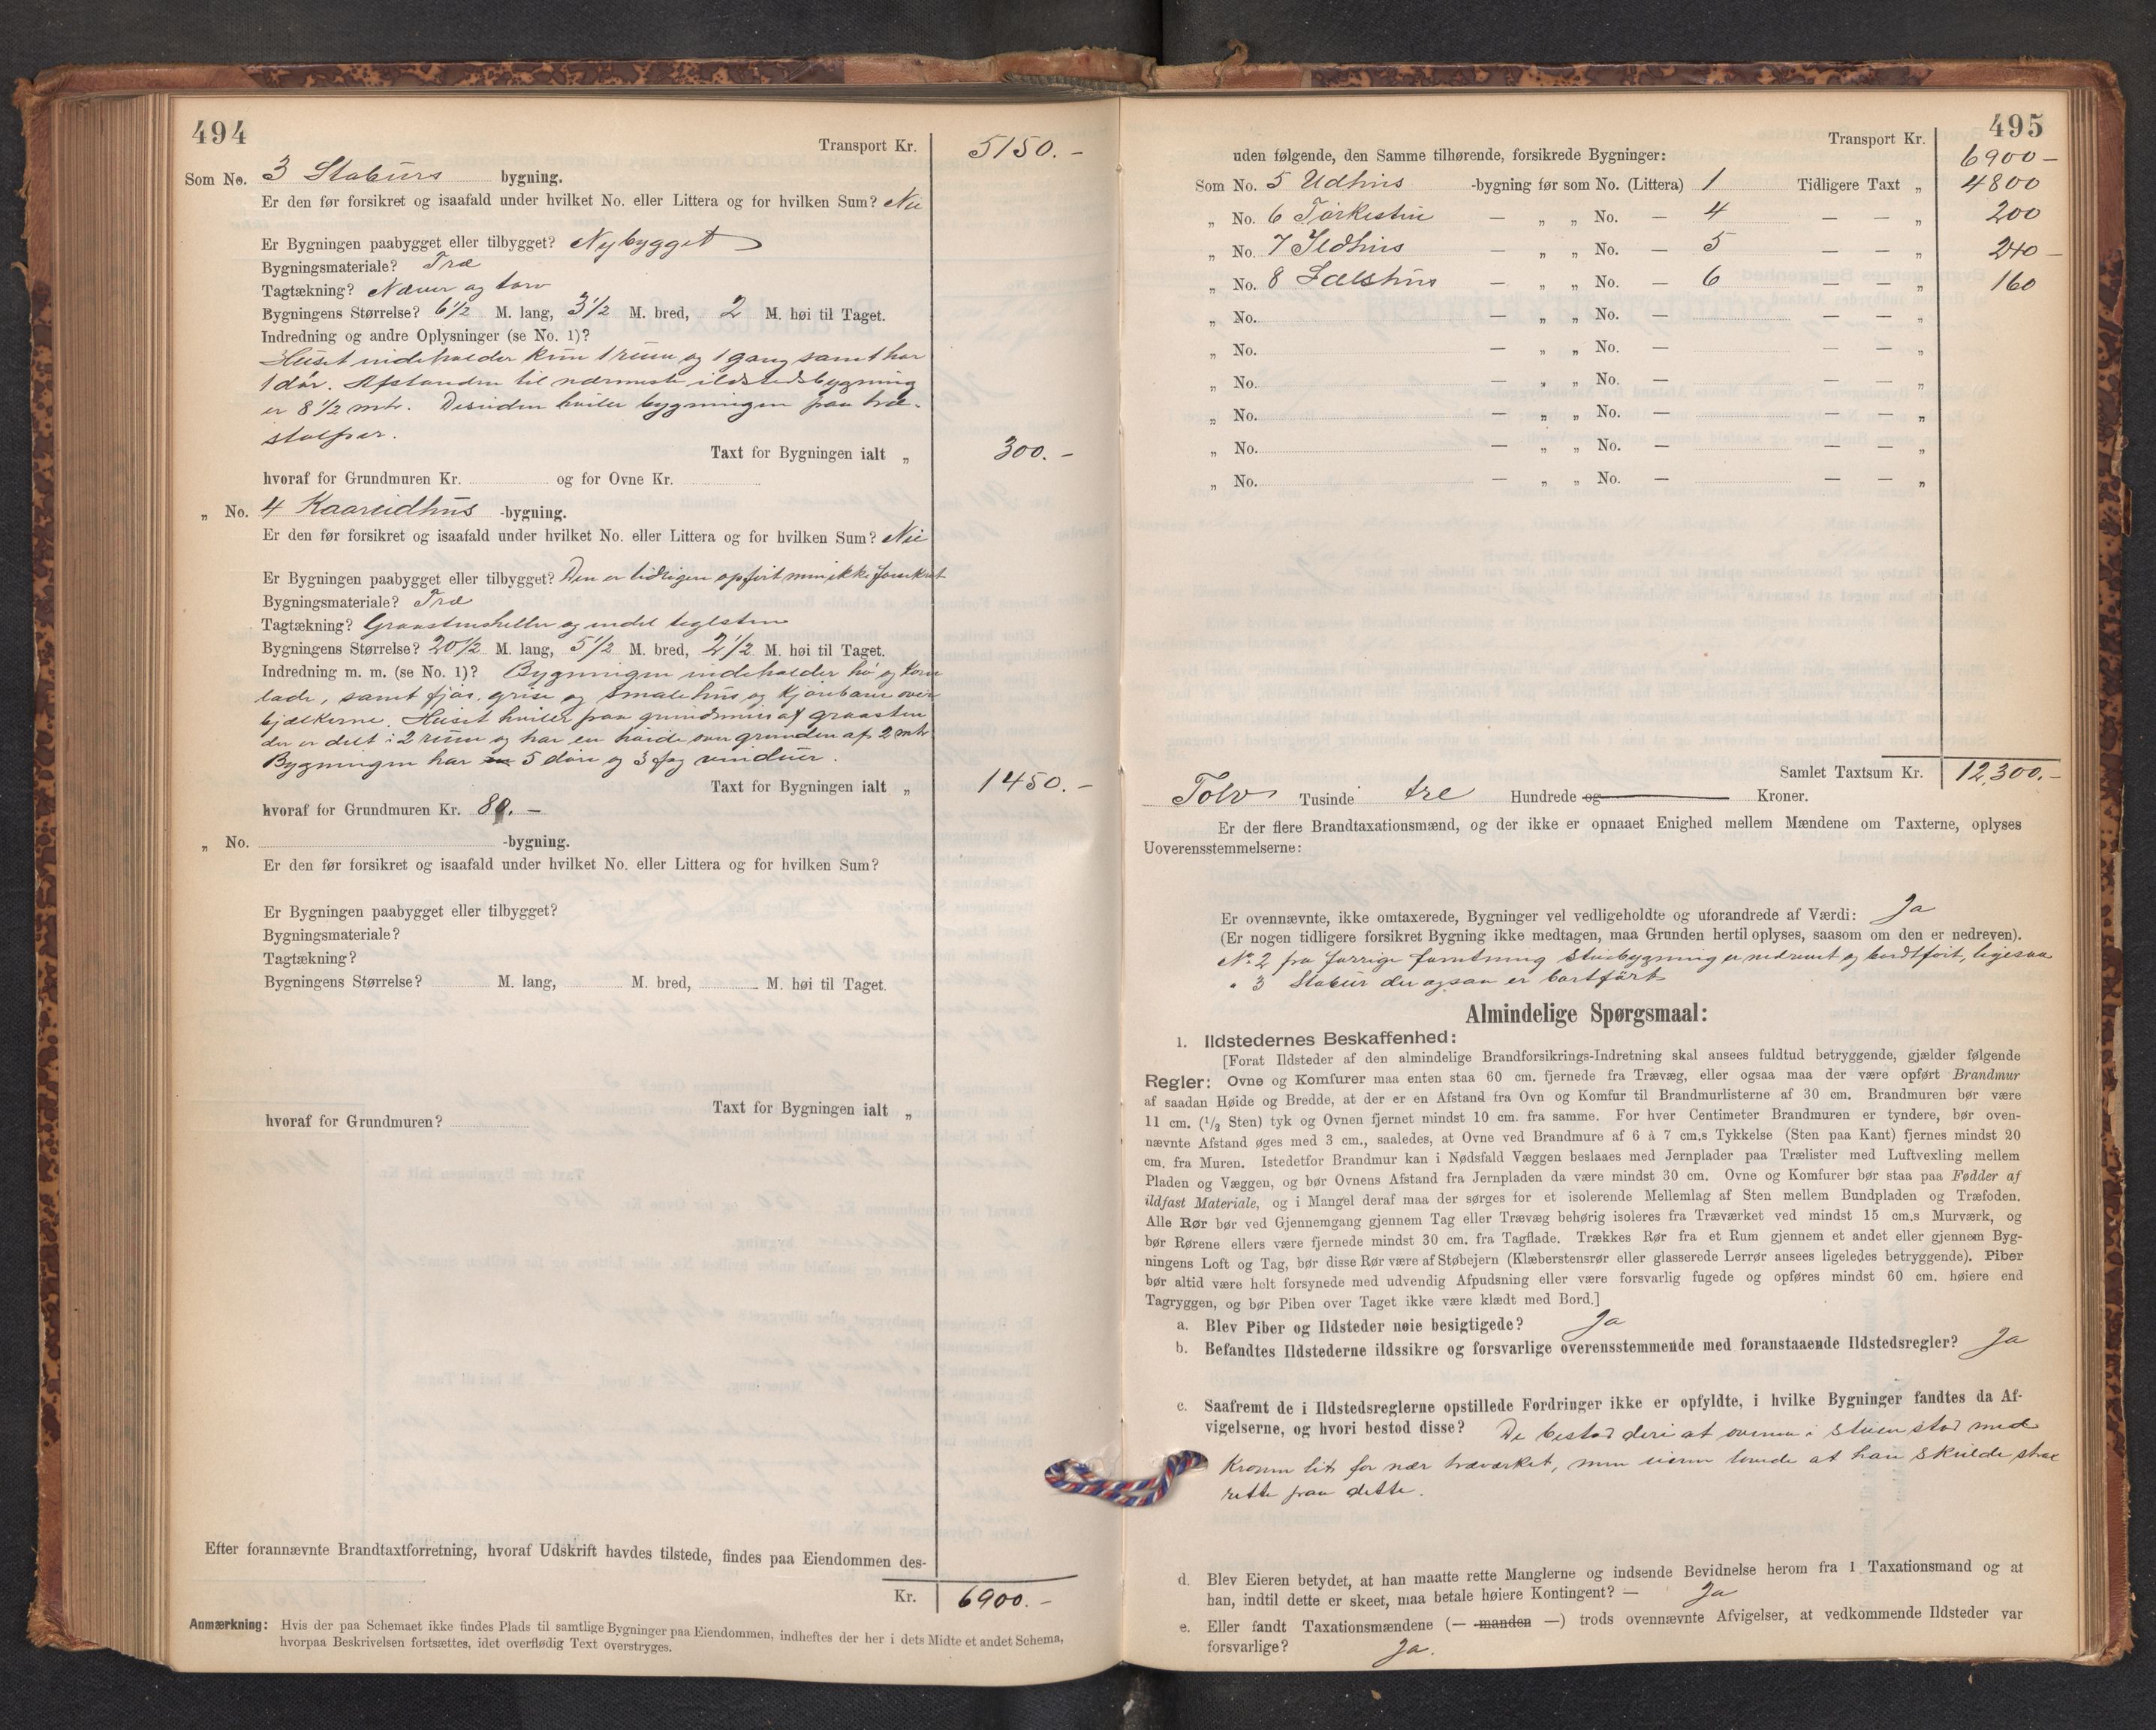 494
Transport Kr. 5150.-
Som No. 3 Staburs bygning.
Er den før forsikret og isaafald under hvilket No. eller Littera og for hvilken Sum? Nei
Er Bygningen paabygget eller tilbygget? Nybygget
Bygningsmateriale? Træ
Tagtækning? Næver og torv
Bygningens Størrelse? 6 1/2 M. lang, 3 1/2 M. bred, 2 M. høi til Taget.
Indredning og andre Oplysninger (se No. 1)?
Huset indeholder kun 1 rum og 1 gang samt har
1 dør. Afstanden til nærmeste ildstedsbygning
er 8 1/2 mtr. Desuden hviler bygningen paa træ-
stolper.
Taxt for Bygningen ialt „ 300.-
hvoraf for Grundmuren Kr. og for Ovne Kr.
„ No. 4 Kaareidhus -bygning.
Er den før forsikret og isaafald under hvilket No. eller Littera og for hvilken Sum? Nei
Er Bygningen paabygget eller tilbygget? Den er tidligere opført men ikke forsikret
Bygningsmateriale? Træ
Tagtækning? Graastensheller og endel teglsten
Bygningens Størrelse? 20 1/2 M. lang, 5 1/2 M. bred, 2 1/2 M. høi til Taget.
Indredning m. m. (se No. 1)? Bygningen indeholder hø og korn
lade, samt fjøs, grise og smalehus og kjørebane over
bjælkerne. Huset hviler paa grundmur af graasten
der er delt i 2 rum og har en høide over grunden af 2 mtr
Bygningen har 5 døre og 3 fag vinduer.
Taxt for Bygningen ialt „ 1450.-
hvoraf for Grundmuren Kr. 80.-
„ No. -bygning.
Er den før forsikret og isaafald under hvilket No. eller Littera og for hvilken Sum?
Er Bygningen paabygget eller tilbygget?
Bygningsmateriale?
Tagtækning?
Bygningens Størrelse? M. lang, M. bred, M. høi til Taget.
Taxt for Bygningen ialt „
hvoraf for Grundmuren?
Efter forannævnte Brandtaxtforretning, hvoraf Udskrift havdes tilstede, findes paa Eiendommen des-
Kr. 6900.-
Anmærkning: Hvis der paa Schemaet ikke findes Plads til samtlige Bygninger paa Eiendommen, indheftes der her i dets Midte et andet Schema,
hvorpaa Beskrivelsen fortsættes, idet overflødig Text overstryges.
495
Transport Kr. 6900-
uden følgende, den Samme tilhørende, forsikrede Bygninger:
Som No. 5 Udhus -bygning før som No. (Littera) 1 Tidligere Taxt „ 4800
„ No. 6 Tørkestue — „ „ No. — 4 — — „ 200
„ No. 7 Ildhus — „ „ No. — 5 — — „ 240-
„ No. 8 Sælshus — „ „ No. — 6 — — „ 160
„ No. — „ „ No. — — — „
„ No. — „ „ No. — — — „
„ No. — „ „ No. — — — „
„ No. — „ „ No. — — — „
„ No. — „ „ No. — — — „
„ No. — „ „ No. — — — „
Samlet Taxtsum Kr. 12,300.-
Tolv Tusinde tre Hundrede og Kroner.
Er der flere Brandtaxationsmænd, og der ikke er opnaaet Enighed mellem Mændene om Taxterne, oplyses
Uoverensstemmelserne:
Er ovennævnte, ikke omtaxerede, Bygninger vel vedligeholdte og uforandrede af Værdi: Ja
(Er nogen tidligere forsikret Bygning ikke medtagen, maa Grunden hertil oplyses, saasom om den er nedreven).
No. 2 fra forrige forretning Stuebygning er nedrevet og bortført, ligesaa
" 3 Stabur der ogsaa er bortført
Almindelige Spørgsmaal:
1. Ildstedernes Beskaffenhed:
[Forat Ildsteder af den almindelige Brandforsikrings-Indretning skal ansees fuldtud betryggende, gjælder følgende
Regler: Ovne og Komfurer maa enten staa 60 cm. fjernede fra Trævæg, eller ogsaa maa der være opført Brandmur
af saadan Høide og Bredde, at der er en Afstand fra Ovn og Komfur til Brandmurlisterne af 30 cm. Brandmuren bør være
11 cm. (1/2 Sten) tyk og Ovnen fjernet mindst 10 cm. fra samme. For hver Centimeter Brandmuren er tyndere, bør oven-
nævnte Afstand øges med 3 cm., saaledes, at Ovne ved Brandmure af 6 à 7 cm.s Tykkelse (Sten paa Kant) fjernes mindst 20
cm. fra Muren. Istedetfor Brandmur kan i Nødsfald Væggen beslaaes med Jernplader paa Trælister med Luftvexling mellem
Pladen og Væggen, og bør Ovnens Afstand fra Jernpladen da være mindst 30 cm. Ovne og Komfurer bør staa paa Fødder af
ildfast Materiale, og i Mangel deraf maa der sørges for et isolerende Mellemlag af Sten mellem Bundpladen og Træfoden.
Alle Rør bør ved Gjennemgang gjennem Tag eller Trævæg behørig isoleres fra Træværket ved mindst 15 cm.s Murværk, og
bør Rørene ellers være fjernede mindst 30 cm. fra Tagflade. Trækkes Rør fra et Rum gjennem et andet eller gjennem Byg-
ningens Loft og Tag, bør disse Rør være af Støbejern (Klæberstensrør eller glasserede Lerrør ansees ligeledes betryggende). Piber
bør altid være holt forsynede med udvendig Afpudsning eller være forsvarlig fugede og opføres mindst 60 cm. høiere end
Tagryggen, og bør Piben over Taget ikke være klædt med Bord.]
a. Blev Piber og Ildsteder nøie besigtigede? Ja
b. Befandtes Ildstederne ildssikre og forsvarlige overensstemmende med foranstaaende Ildstedsregler? Ja
c. Saafremt de i Ildstedsreglerne opstillede Fordringer ikke er opfyldte, i hvilke Bygninger fandtes da Af-
vigelserne, og hvori bestod disse? De bestod deri at ovnen i stuen stod med
Kronen lit for nær træværket, men eieren lovede at han skulde strax
rette paa dette.
d. Blev Eieren betydet, at han maatte rette Manglerne og indsende Bevidnelse herom fra 1 Taxationsmand og at
han, indtil dette er skeet, maa betale høiere Kontingent? — Ja
e. Eller fandt Taxationsmændene (— manden —) trods ovennævnte Afvigelser, at vedkommende Ildsteder var
forsvarlige? Ja.